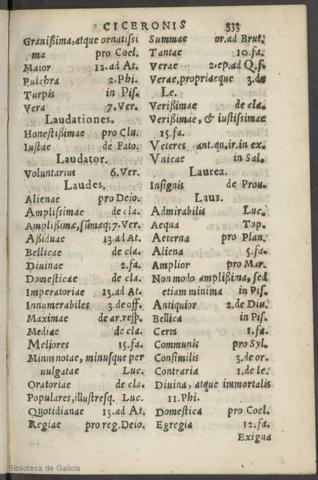 CICERONIS 333
Grauißima, atque ornatißi
ma pro Coel.
Maior 12.ad At.
Pulchra 2.Phi.
Turpis in Pis.
Vera 7.Ver.
Laudationes.
Honestißimae pro Clu.
Iustae de Fato.
Laudator.
Voluntarius 6.Ver.
Laudes.
Alienae pro Deio.
Amplißimae de cla.
Amplißimae, 7.Ver.
Aßiduae 13.ad At.
Bellicae de cla.
Diuinae 2.fa.
Domesticae de cla.
Imperatoriae 13.ad At.
Innumerabiles 3.de off.
Maximae de ar.resp.
Mediae de cla.
Meliores 15.fa.
Minus notae, minusque per
uulgatae Luc.
Oratoriae de cla.
Populares, illustresq. Luc.
Quotidianae 13.ad At.
Regiae pro reg. Deio.
Summae or.ad Brut.
Tantae 10.fa.
Verae 2.ep.ad Q.f.
Verae, propriaeque 3.de
Le.
Verißimae de cla.
Verißimae, & iustißimae
15.fa.
Veteres ant.qu.ir.in ex.
Vnicae in Sal.
Laurea.
Insignis de Prou.
Laus.
Admirabilis Luc.
Aequa Top.
Aeterna pro Plan.
Aliena 5.fa.
Amplior pro Mar.
Non modo amplißima, sed
etiam minima in Pis.
Antiquior 2.de Diu.
Bellica in Pis.
Certa 1.fa.
Communis pro Syl.
Consimilis 3.de or.
Contraria 1.de le.
Diuina, atque immortalis
11.Phi.
Domestica pro Coel.
Egregia 12.fa.
Exigua
Biblioteca de Galicia